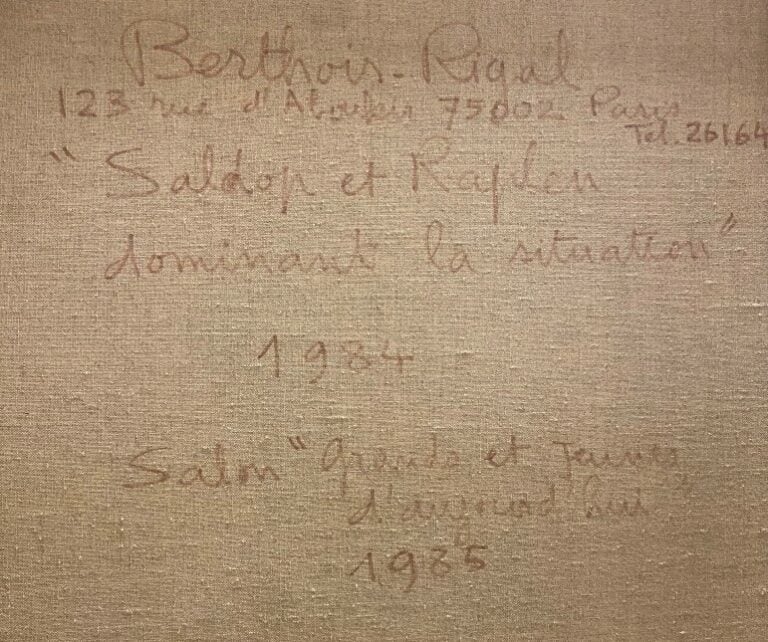 Berthois-Rigal
123 rue d'Aboukir 75002 Paris
Tel. 26164
" Saldop et Raplen
dominant la situation"
1984
Salon "Grands et Jeunes
d'aujourd'hui"
1985